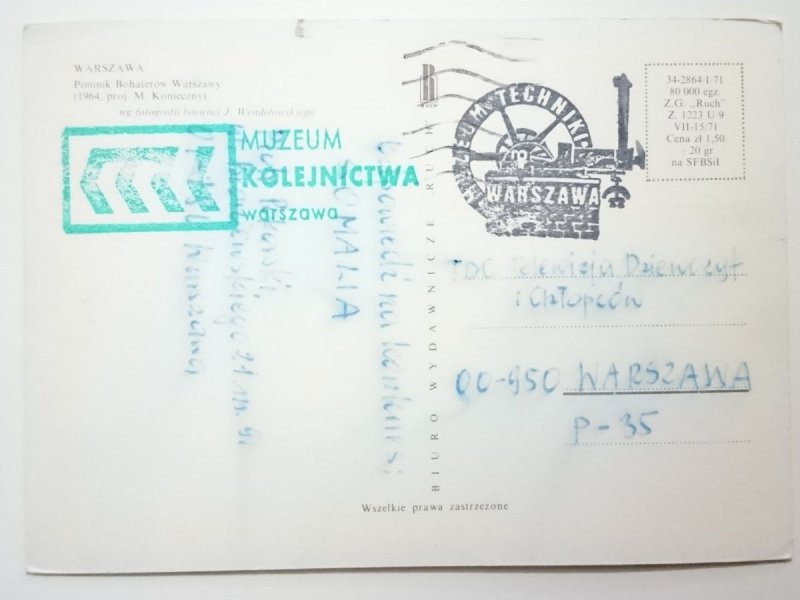 WARSZAWA
Pomnik Bohaterów Warszawy
(1964, proj. M. Konieczny)
wg fotografii barwnej J. Wendołowskiego
MUZEUM
KOLEJNICTWA
warszawa
odpowiedź na konkurs
SOMALIA
21 m. 91
Warszawa
BIURO WYDAWNICZE „RUCH”
MUZEUM TECHNIKI
WARSZAWA
34-2864 I/71
80 000 egz.
Z.G. „Ruch”
Z. 1223 U 9
VII-15/71
Cena zł 1,50
+ 20 gr
na SFBSiI
TDC Telewizja Dziewcząt
i Chłopców
00-950 WARSZAWA
P-35
Wszelkie prawa zastrzeżone